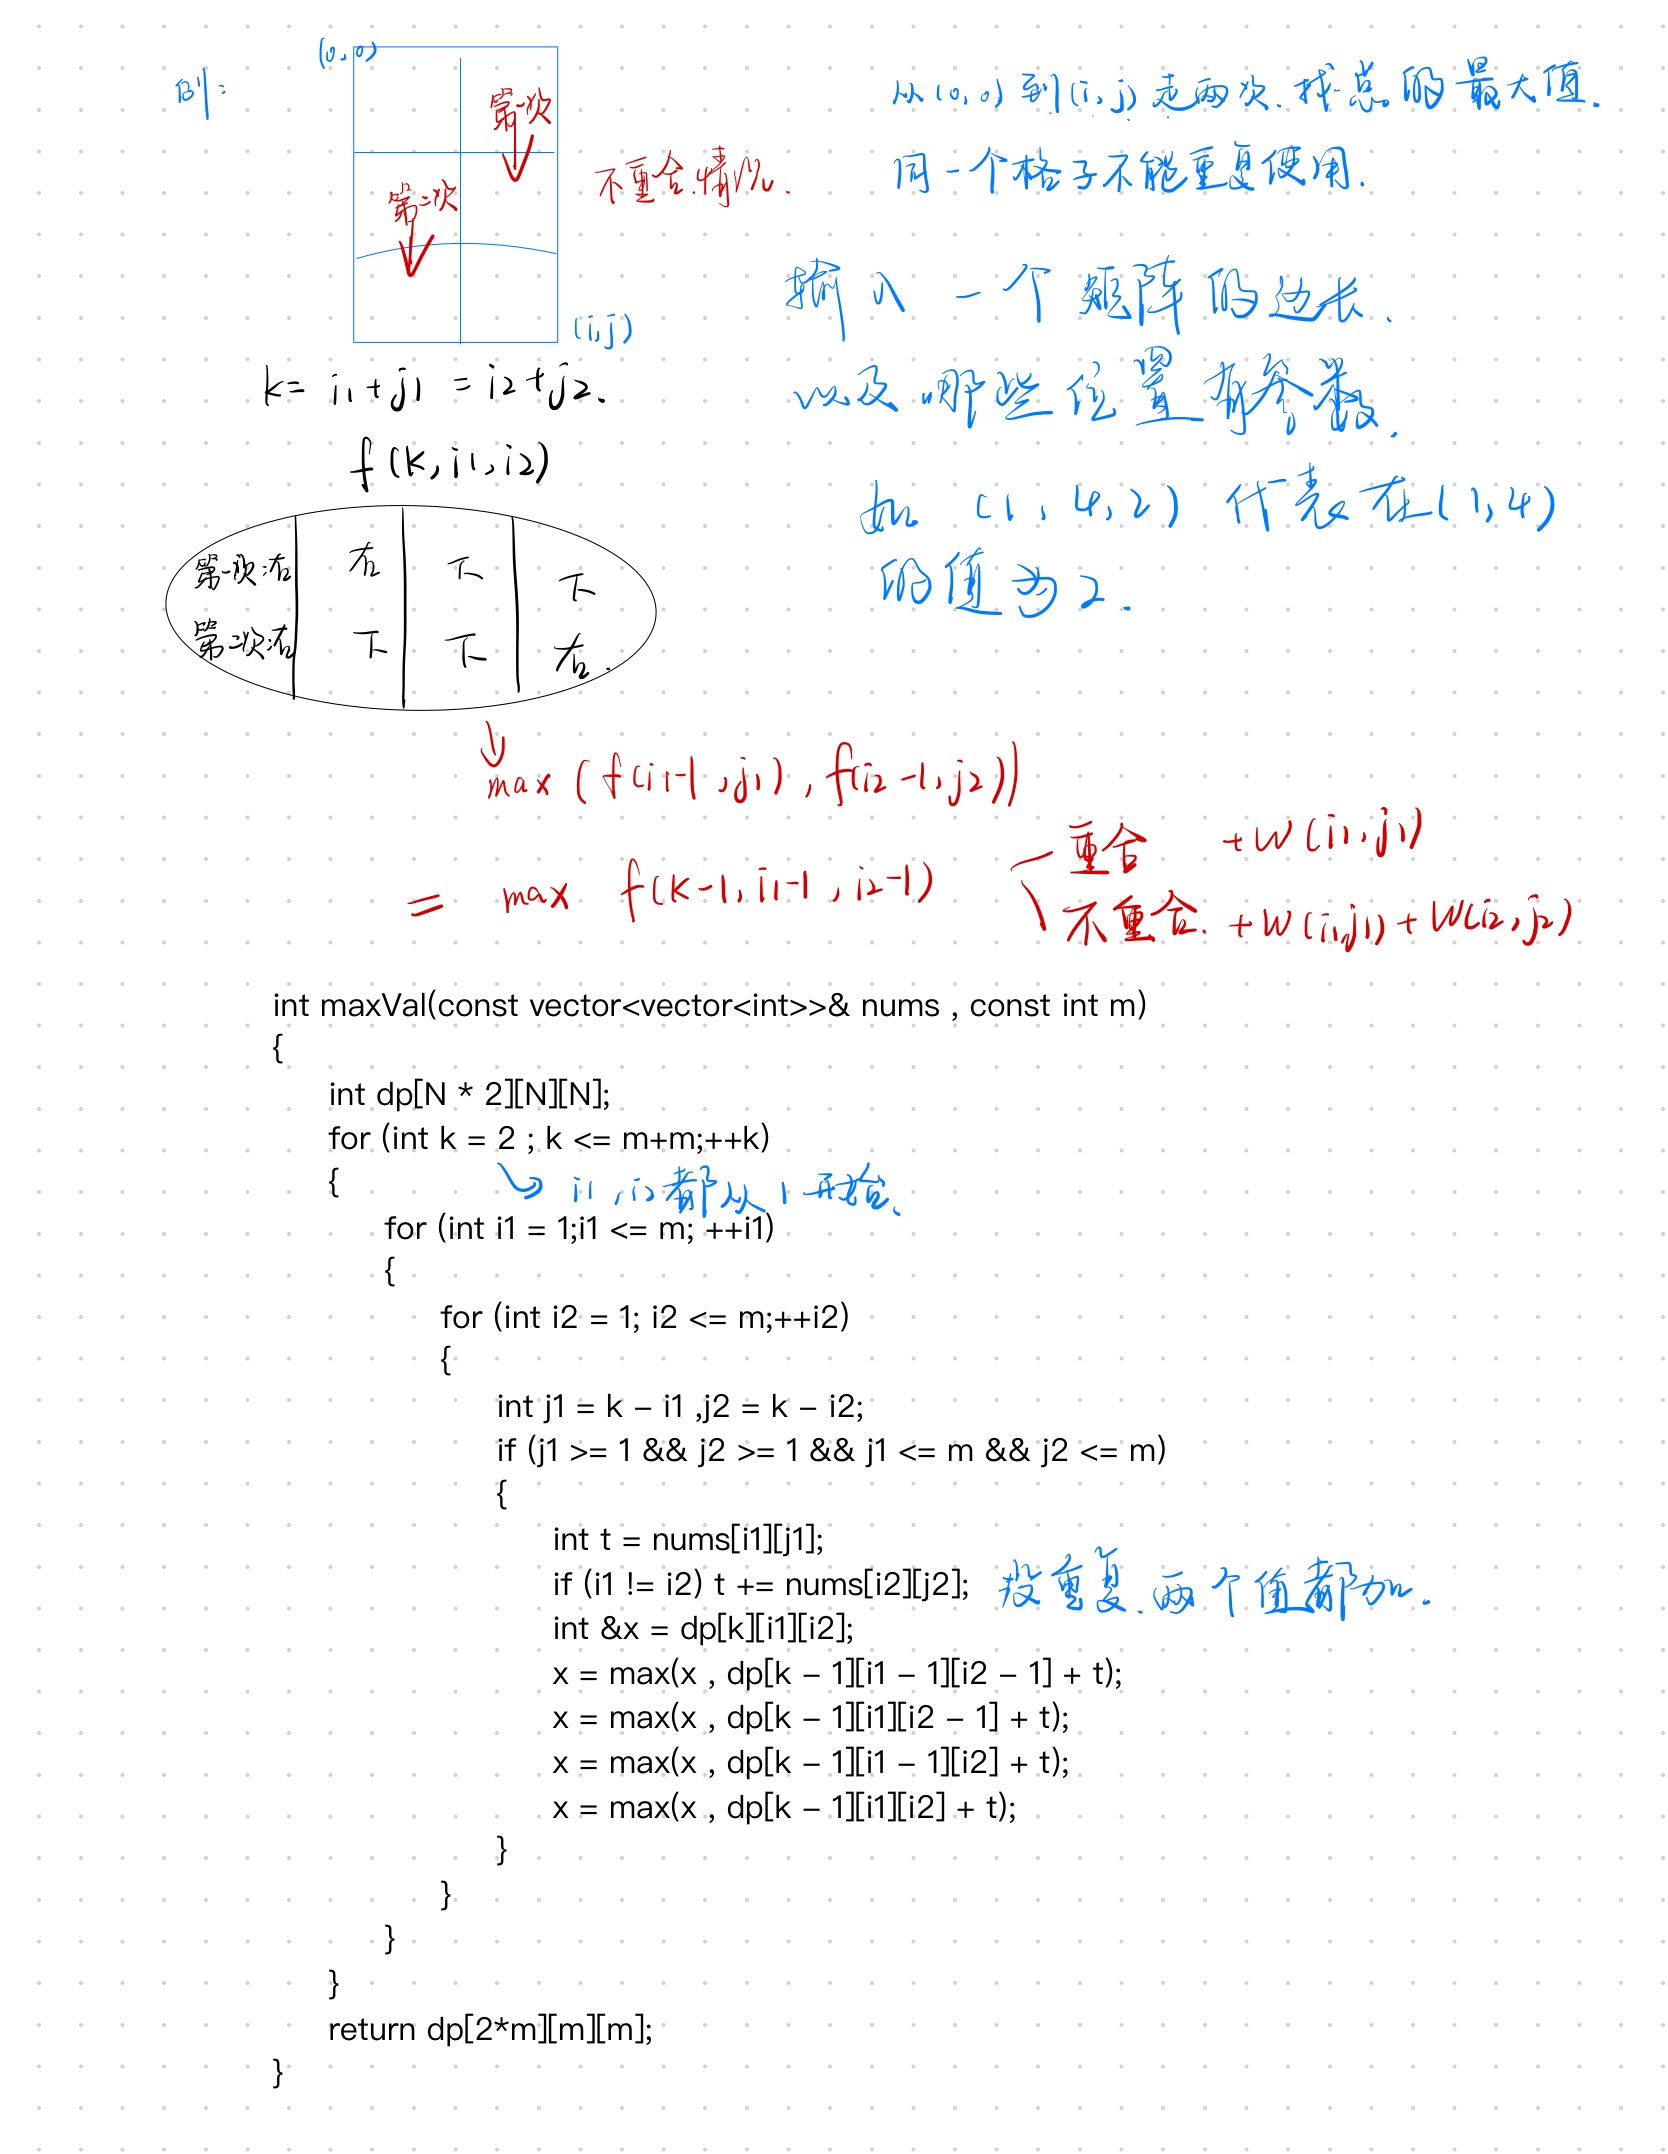 例:
(0,0)
第一次
第二次
不重合情况.
(i,j)
从(0,0)到(i,j)走两次.找总的最大值.
同一个格子不能重复使用.
输入一个矩阵的边长.
以及哪些位置有参数.
如 (1,4,2) 代表在(1,4)
的值为2.
k= i1+j1 = i2+j2.
f(k,i1,i2)
第一次:右 右 下 下
第二次:右 下 下 右.
max (f(i1-1,j1), f(i2-1,j2))
= max f(k-1,i1-1,i2-1)
重合 +W(i1,j1)
不重合. +W(i1,j1)+W(i2,j2)
int maxVal(const vector<vector<int>>& nums , const int m)
{
int dp[N * 2][N][N];
for (int k = 2 ; k <= m+m;++k)
{
i1,i2都从1开始.
for (int i1 = 1;i1 <= m; ++i1)
{
for (int i2 = 1; i2 <= m;++i2)
{
int j1 = k – i1 ,j2 = k – i2;
if (j1 >= 1 && j2 >= 1 && j1 <= m && j2 <= m)
{
int t = nums[i1][j1];
if (i1 != i2) t += nums[i2][j2]; 没重复.两个值都加.
int &x = dp[k][i1][i2];
x = max(x , dp[k – 1][i1 – 1][i2 – 1] + t);
x = max(x , dp[k – 1][i1][i2 – 1] + t);
x = max(x , dp[k – 1][i1 – 1][i2] + t);
x = max(x , dp[k – 1][i1][i2] + t);
}
}
}
}
return dp[2*m][m][m];
}